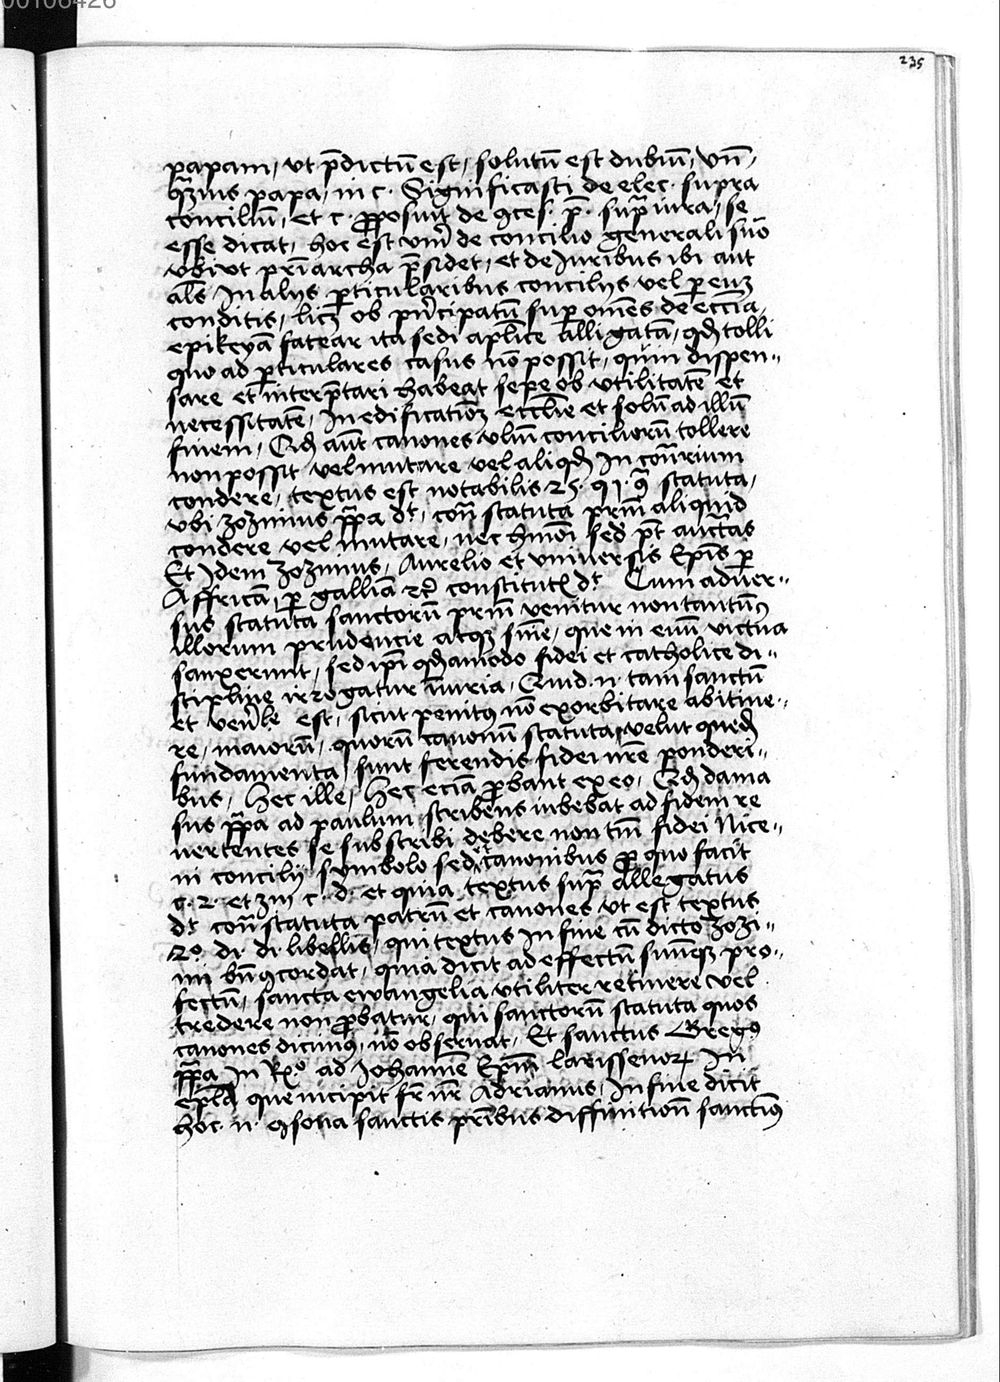 00106426
235
papam, vt p̄dictū est, solutū est dubiū, vn̄
q̄muis papa, in c. Significasti de elec. supra
conciliū, et c. proposuit de ꝯces. p̄. sup̄ iura, se
esse dicat, hoc est verū de concilio generali suo
vbi vt priarcha p̄sidet, et de Iuribus ibi aut
als̄ In alijs perticularibus concilijs vel per eum
conditis, licz ob principatū super omēs de ecc̄ia,
epikeyā fatear ita sedi aplice alligatā, qđ tolli
quo ad perticulares casus nō possit, quin dispen-
sare et interp̄tari habeat sepe ob vtilitatē et
necessitatē, In edificationē ecclie et solū ad illū
finem, Qđ aūt canones vliū conciliorū tollere
non possit vel mutare vel aliqđ In cōtrarium
condere, textus est notabilis 25. q. 1. q̄ statuta,
vbi zozimus pp̄a dt, con̄ statuta prm̄ aliquid
condere vel mutare, nec hm̄oi sed pt auctas
Et Idem zozimus, Aurelio et vniuersis Ep̄is per
Affricā, per galliā ⁊c̄ constitutꝭ dt Cum aduer-
sus statuta sanctorū prm̄ venitur non tantūꝯ
illorum prudencie atqꝫ sn̄ie, que in euū victura
sanxerunt, sed ipi qđamodo fidei et catholice di-
scipline irrogatur iniuria, Quid .n. tam sanctū
et ven̄le est, sicut penitꝰ nō exorbitare ab itine-
re, maiorū, quorū canonū statuta, velut quedā
fundamenta, sunt ferendis fidei nr̄e ponderi-
bus, Hec ille, Hec eciā probant ex eo, Qđ dama
sus pp̄a ad paulum scribens iubebat ad fidem re
uertentes se subscribi debere non tm̄ fidei Nice-
ni concilij symbolo sed et canonibus pro quo facit
c. 2. et 3m c. d. et quia textus sup̄ Allegatus
dt con̄ statuta patrū et canones vt est textus
20. di. di libellis, qui textus In fine cū dicto zozi-
mi bn̄ ꝯcordat, quia dicit ad effectū suūqꝫ pro-
fectū, sancta ewangelia vtiliter retinere vel
credere non probatur, qui sanctorū statuta quos
canones dicimꝰ, nō obseruat, Et sanctus Gregꝰ
pp̄a In Rꝰ ad Johannē Ep̄m larissenoꝝ In
epl̄a que incipit fr̄ nr̄ Adrianus, In fine dicit
hoc .n. ꝯsona sanctis pribus diffinitiōn sanctiꝰ